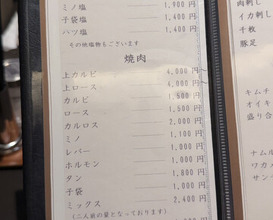 ミノ塩 1,900円
子袋塩 1,400円
ハツ塩 1,400円
その他塩物もございます
焼肉
上カルビ 4,000円
上ロース 4,000円
カルビ
ロース
カルロス 2,000円
ミノ 1,100円
レバー 1,000円
ホルモン 1,000円
タン
子袋 1,000円
ミックス 2,400円
(二人前の量となっております)
肉刺し
イカ刺し
千枚
豚足
キムチ
オイキ
盛り合
ナムル
ワカメ
サンチ